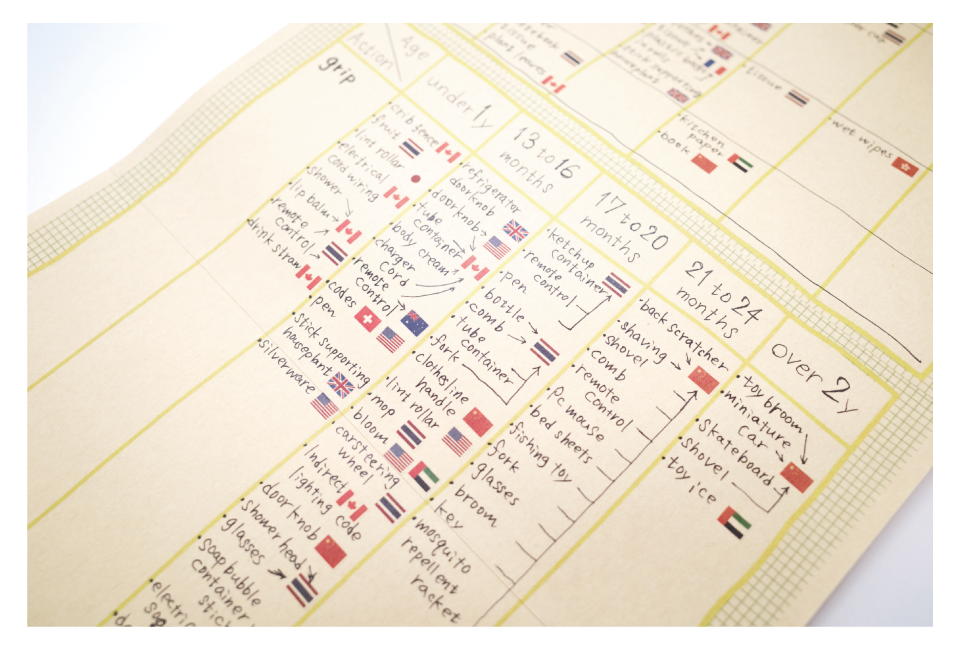 Age
Action
grip
under 1y
13 to 16
months
17 to 20
months
21 to 24
months
over 2y
tissue
plant leaves
stick supporting
houseplant
• tissue
• kitchen
paper
• book
• wet wipes
• crib fence
• fruit
• lint rollar
• electrical
cord wiring
• shower
• lip balm
• remote
control
• drink straw
• refrigerator
doorknob
• doorknob
• tube
container
• body cream
• charger
cord
• remote
control
• codes
• pen
• stick supporting
houseplant
• silverware
• ketchup
container
• remote
control
• pen
• bottle
• comb
• tube
container
• fork
• clothesline
handle
• lint rollar
• mop
• bloom
• carsteering
wheel
• Indirect
lighting code
• door knob
• shower head
• glasses
• soap bubble
container
stick
• electric
• back scratcher
• shaving
• shovel
• comb
• remote
control
• pc mouse
• bed sheets
• fishing toy
• fork
• glasses
• broom
• key
• mosquito
repellent
racket
• toy broom
• miniature
car
• skateboard
• shovel
• toy ice